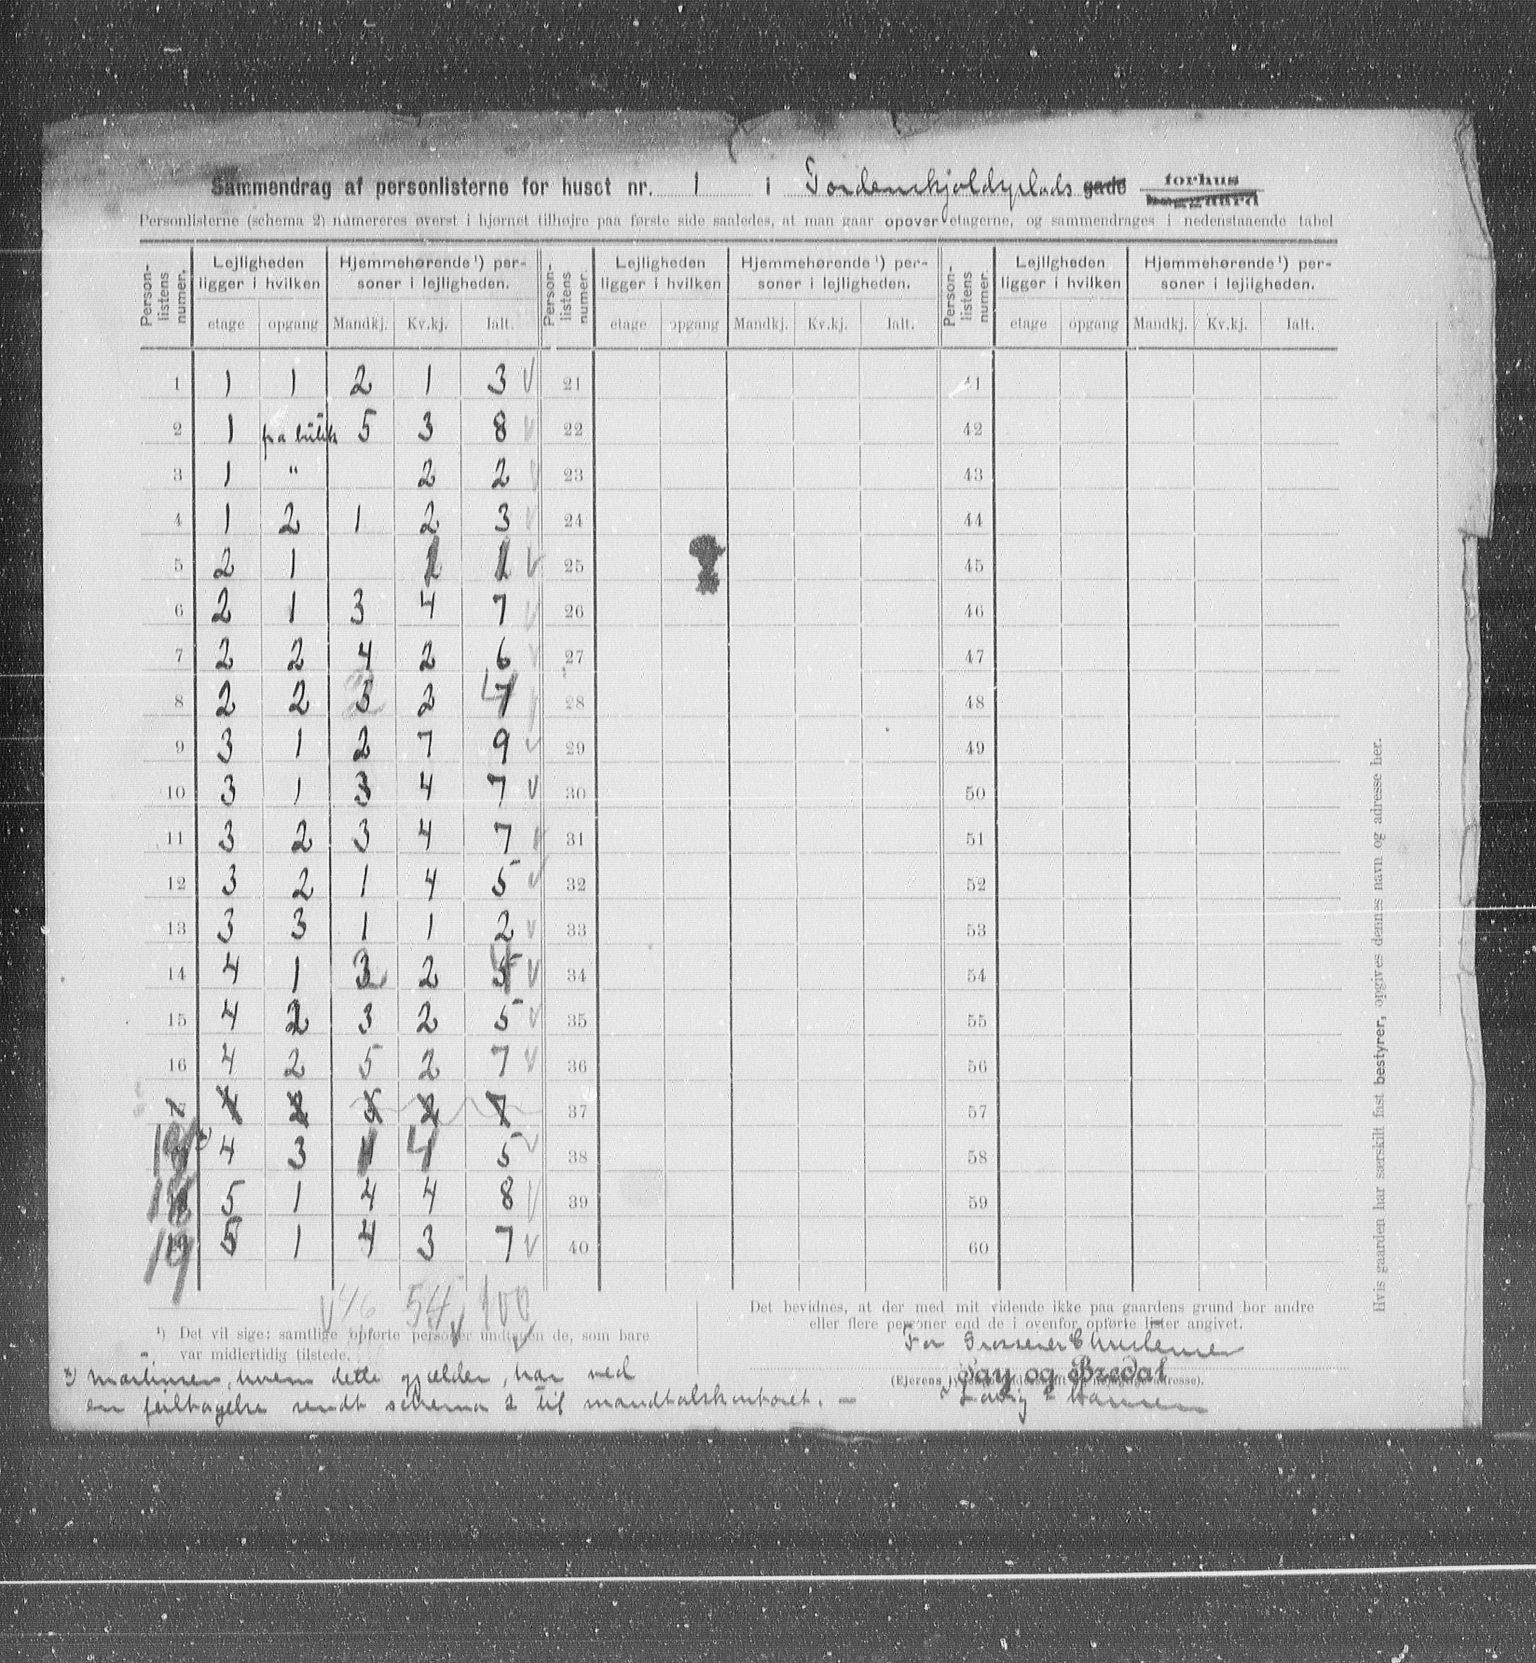 Sammendrag af personlisterne for huset nr. 1 i Tordenskjoldsplads gade forhus baggaard
Personlisterne (schema 2) numereres øverst i hjørnet tilhøjre paa første side saaledes, at man gaar opover etagerne, og sammendrages i nedenstaaende tabel
Personlistens numer. Lejligheden ligger i hvilken Hjemmehørende ¹) personer i lejligheden. Personlistens numer. Lejligheden ligger i hvilken Hjemmehørende ¹) personer i lejligheden. Personlistens numer. Lejligheden ligger i hvilken Hjemmehørende ¹) personer i lejligheden.
etage opgang Mandkj. Kv.kj. Ialt. etage opgang Mandkj. Kv.kj. Ialt. etage opgang Mandkj. Kv.kj. Ialt.
1 1 1 2 1 3 21 41
2 1 fra butik 5 3 8 22 42
3 1 " 2 2 23 43
4 1 2 1 2 3 24 44
5 2 1 1 1 25 45
6 2 1 3 4 7 26 46
7 2 2 4 2 6 27 47
8 2 2 2 4 28 48
9 3 1 2 7 9 29 49
10 3 1 3 4 7 30 50
11 3 2 3 4 7 31 51
12 3 2 1 4 5 32 52
13 3 3 1 1 2 33 53
14 4 1 2 2 4 34 54
15 4 2 3 2 5 35 55
16 4 2 5 2 7 36 56
4 2 5 2 7 37 57
*) 4 3 1 4 5 38 58
18 5 1 4 4 8 39 59
19 5 1 4 3 7 40 60
46 54 100
¹) Det vil sige: samtlige opførte personer undtagen de, som bare
var midlertidig tilstede.
Det bevidnes, at der med mit vidende ikke paa gaardens grund bor andre
eller flere personer end de i ovenfor opførte lister angivet.
For Grosserer
Say og Bredal
(Ejerens
Ludvig Hansen
*) Martinsen, hvem dette gjælder, har ved
en feiltagelse sendt schema 2 til mandtalskontoret. —
Hvis gaarden har særskilt fast bestyrer, opgives dennes navn og adresse her.